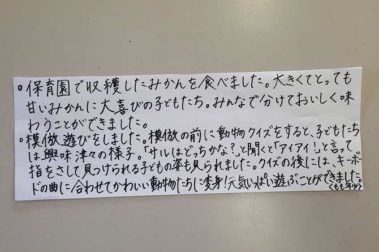 。保育園で収穫したみかんを食べました。大きくてとっても
甘いみかんに大喜びの子どもたち。みんなで分けておいしく味
わうことができました。
。模倣遊びをしました。模倣の前に動物クイズをすると、子どもたち
は興味津々の様子。「サルはどっちかな?」と聞くと「アイアイ!」と言って
指をさして見つけられる子どもの姿も見られました。クイズの後には、キーボー
ドの曲に合わせてかわいい動物たちに変身!元気いっぱい遊ぶことができました。